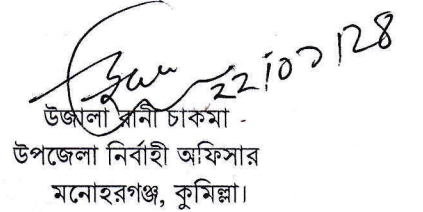 22/07/28
উজালা রানী চাকমা
উপজেলা নির্বাহী অফিসার
মনোহরগঞ্জ, কুমিল্লা।